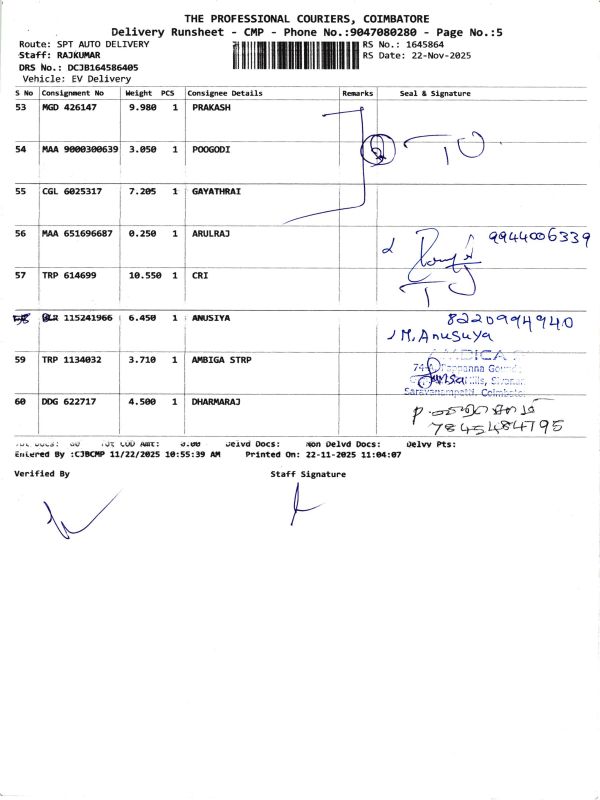 THE PROFESSIONAL COURIERS, COIMBATORE
Delivery Runsheet - CMP - Phone No.:9047080280 - Page No.:5
Route: SPT AUTO DELIVERY RS No.: 1645864
Staff: RAJKUMAR RS Date: 22-Nov-2025
DRS No.: DCJB164586405
Vehicle: EV Delivery
S No Consignment No Weight PCS Consignee Details Remarks Seal & Signature
53 MGD 426147 9.980 1 PRAKASH
54 MAA 9000300639 3.050 1 POOGODI
55 CGL 6025317 7.205 1 GAYATHRAI
56 MAA 651696687 0.250 1 ARULRAJ 9944006339
57 TRP 614699 10.550 1 CRI
58 BLR 115241966 6.450 1 ANUSIYA 8220994940
M.Anusuya
59 TRP 1134032 3.710 1 AMBIGA STRP
Saravanampatti, Coimbatore
60 DDG 622717 4.500 1 DHARMARAJ
7845484795
Tot Docs: 60 Tot COD Amt: 0.00 Delvd Docs: Non Delvd Docs: Delvy Pts:
Entered By :CJBCMP 11/22/2025 10:55:39 AM Printed On: 22-11-2025 11:04:07
Verified By Staff Signature